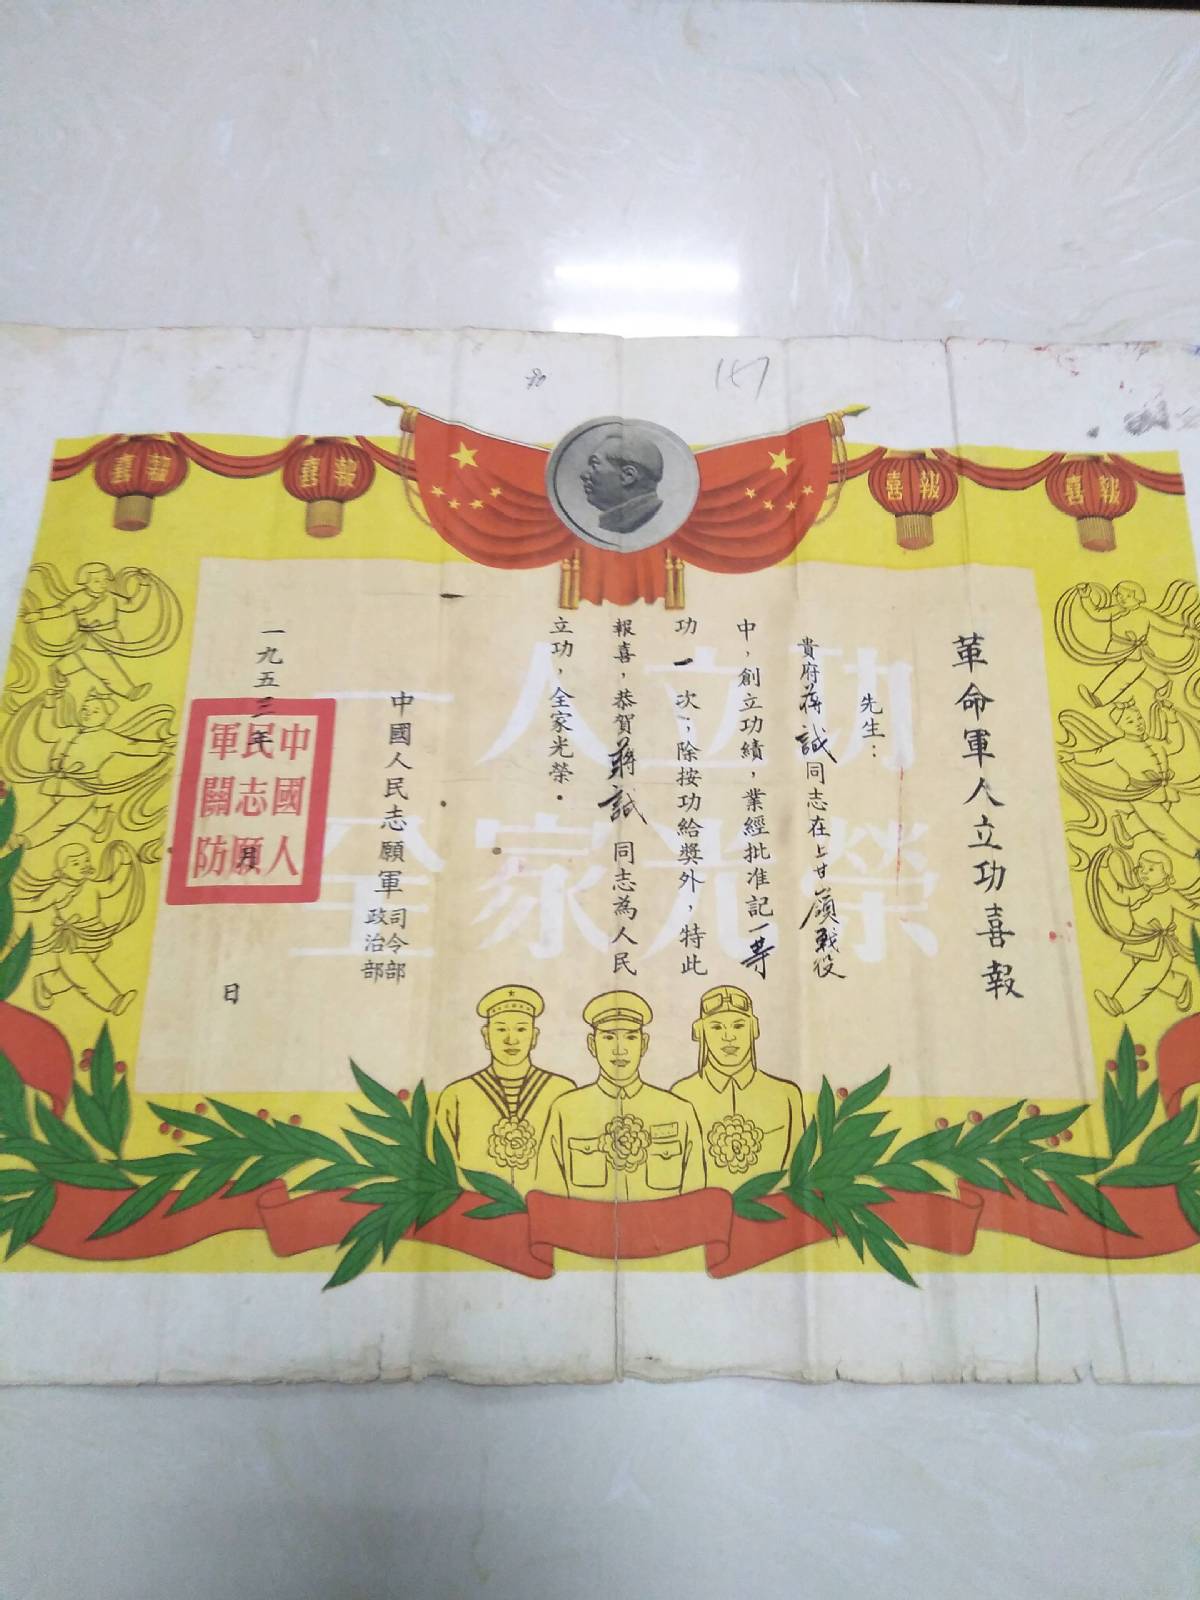 革命軍人立功喜報
先生：
貴府蔣誠同志在上甘嶺戰役
中，創立功績，業經批准記一等
功一次；除按功給獎外，特此
報喜，恭賀蔣誠同志為人民
立功，全家光榮．
中國人民志願軍司令部
政治部
一九五三年月日
中國人
民志願
軍關防
一人立功
全家光榮
喜報
喜報
喜報
喜報
187